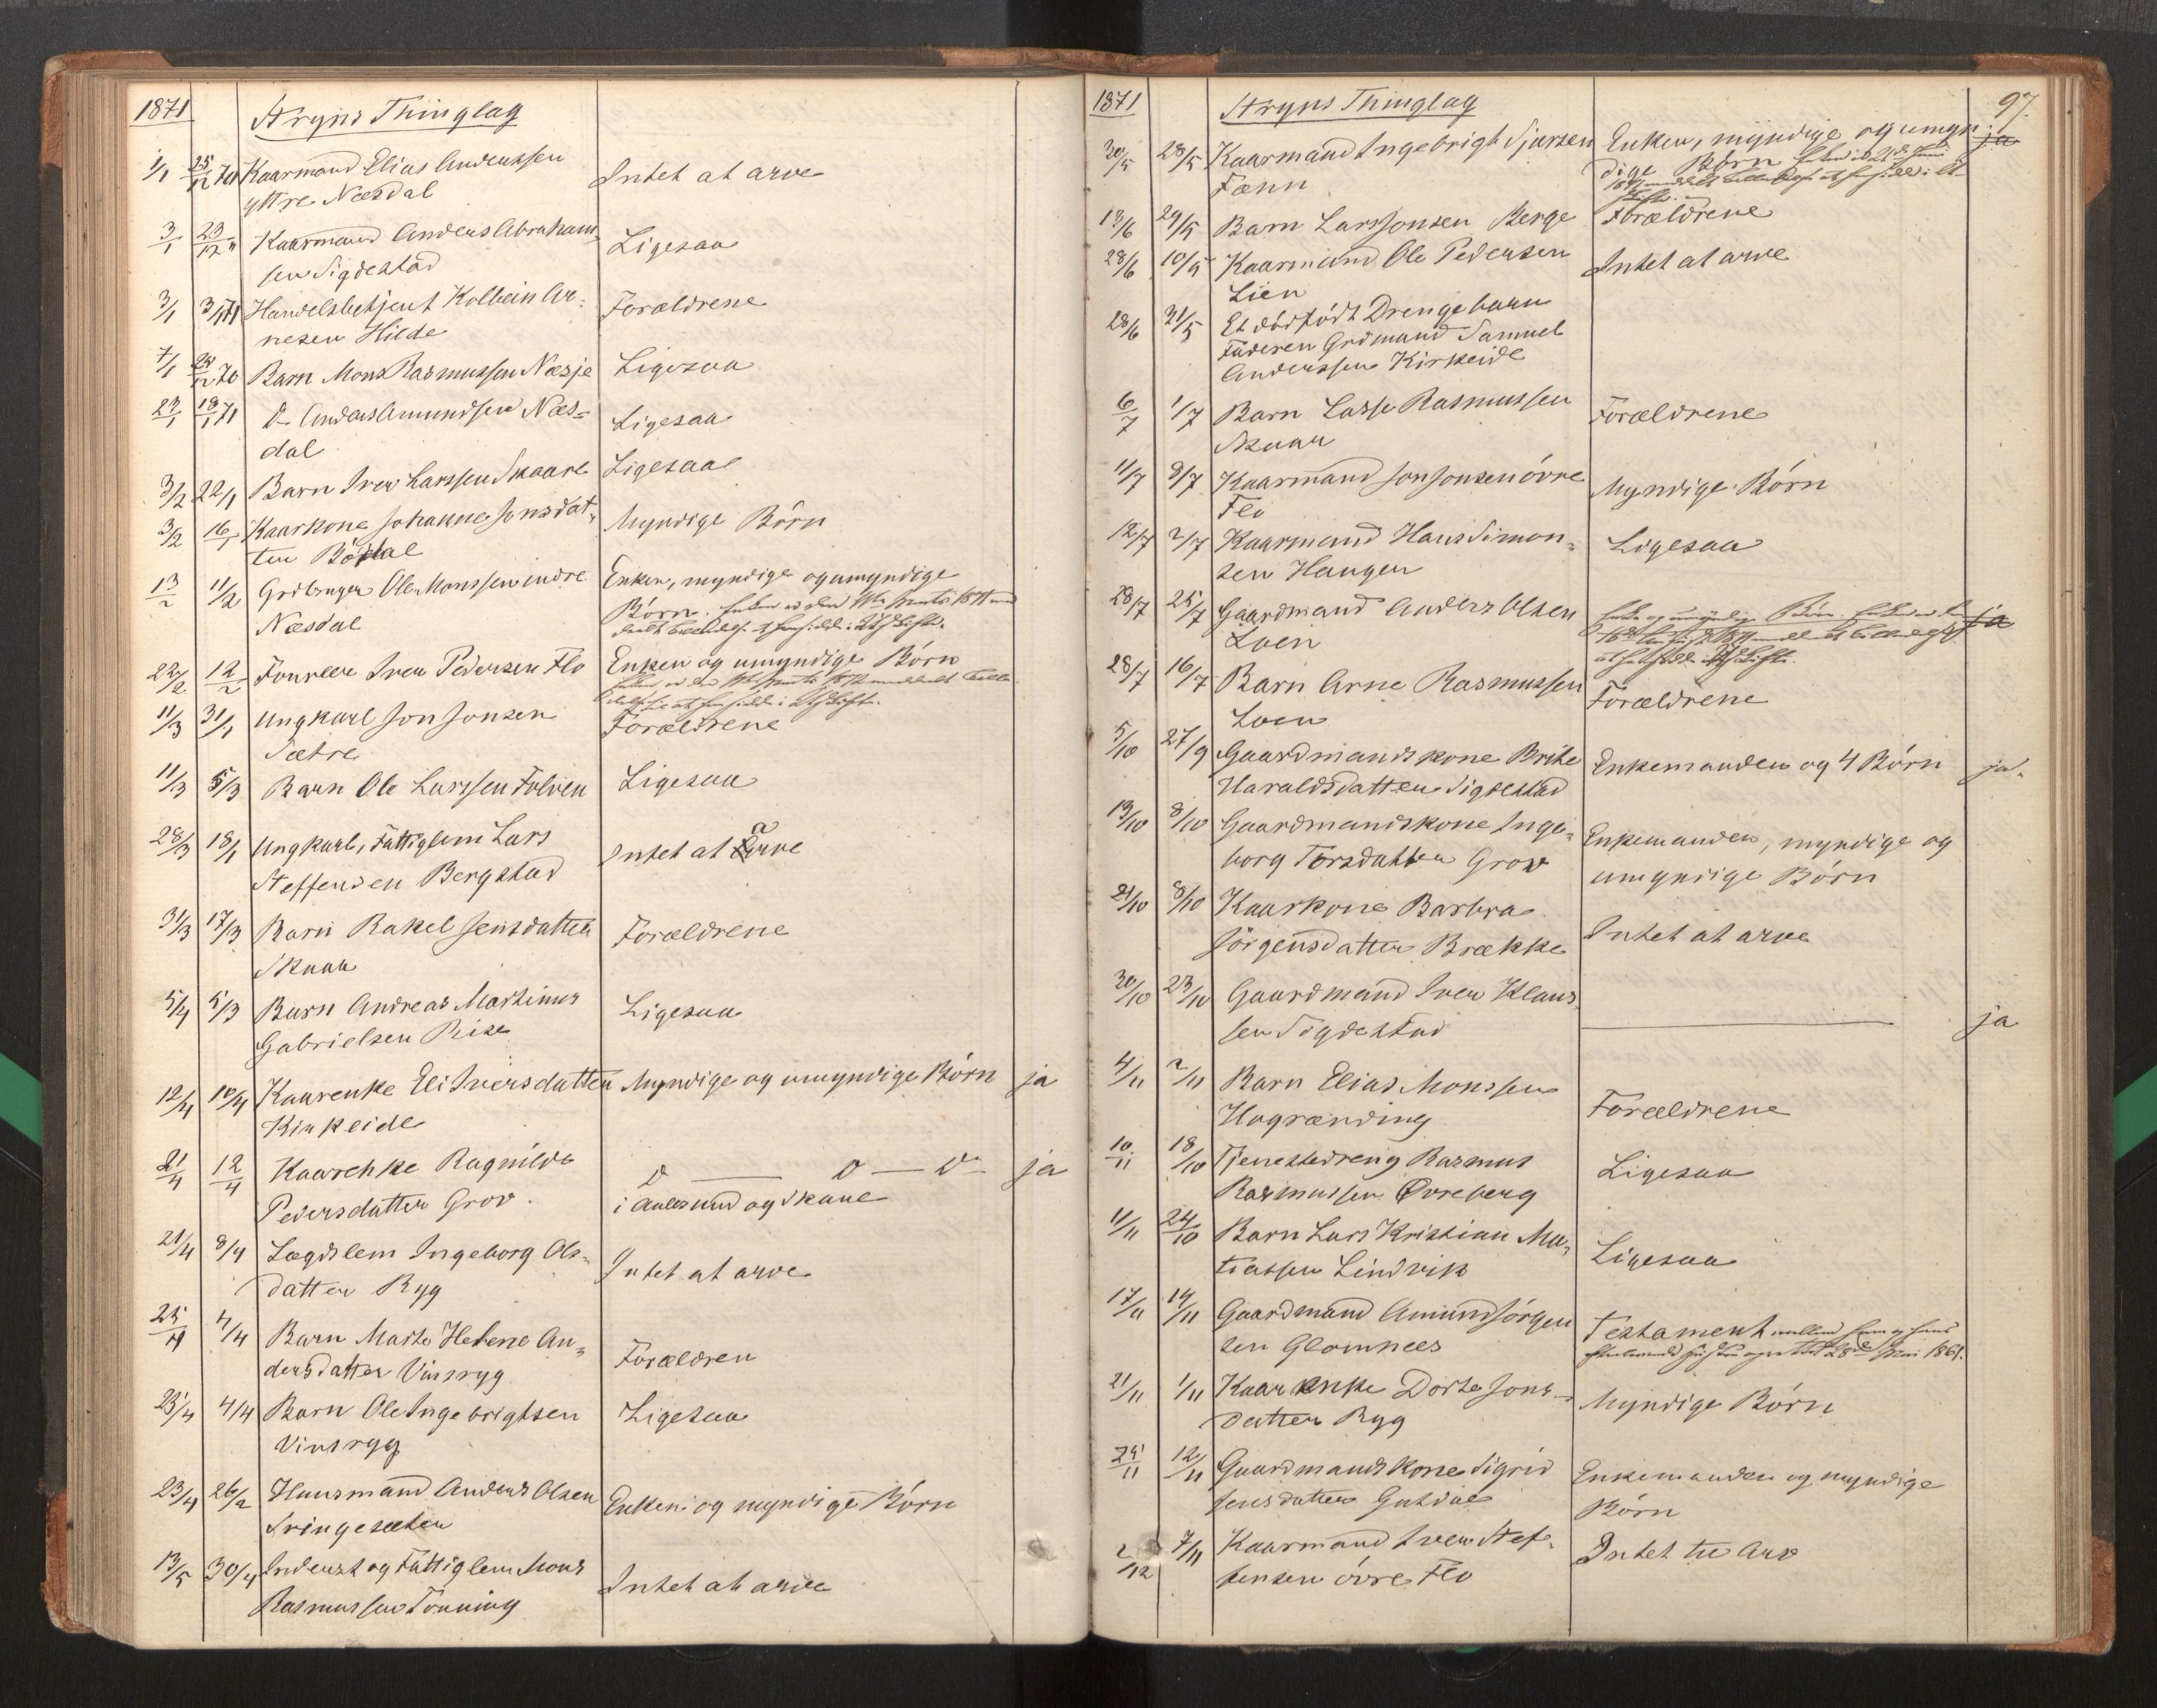 1871
Stryns Thinglag
1/1 25/12 70 Kaarmand Elias Anderssen Intet at arve
yttre Næsdal
3/1 23/12 " Kaarmand Anders Abraham- Ligesaa
sen Sigdestad
3/1 3/1 71 Handelsbetjent Kolbein Ar- Forældrene
nesen Hilde
7/1 28/12 70 Barn Mons Rasmussen Næsje Ligesaa
23/1 18/1 71 d- Anders Amundsen Næs- Ligesaa
dal
3/2 22/1 Barn Iver Larssen Skaare Ligesaa
3/2 16/1 Kaarkone Johanne Jonsdat- Myndige Börn
ter Bödal
13/2 11/2 Grdbruger Ole Monssen indre Enken, myndige og umyndige
Næsdal Börn.
22/2 12/2 Iver Pedersen Flo Enken og umyndige Börn
11/3 31/1 Ungkarl Jon Jonsen Forældrene
Sætre
11/3 5/3 Barn Ole Larssen Folven Ligesaa
28/3 18/1 Ungkarl, Fattiglem Lars Intet at arve
Steffensen Bergstad
31/3 17/3 Barn Rakel Jensdatter Forældrene
Skaar
5/4 5/3 Barn Andreas Martinus Ligesaa
Gabrielsen Rise
12/4 10/4 Kaarenke Eli Iversdatter Myndige og umyndige Börn ja
Kirkeide
21/4 12/4 Kaarenke Ragnilda d — d — d- ja
Pedersdatter Grov. i Aalesund og Skaue
21/4 8/4 Lægdslem Ingeborg Ols- Intet at arve
datter Ryg
25/4 4/4 Barn Marte Helene An- Forældren
dersdatter Vinsryg
23/4 4/4 Barn Ole Ingebrigtsen Ligesaa
Vinsryg
23/4 26/2 Huusmand Anders Olsen Enken og myndige Börn
Tringesæter
13/5 30/4 Inderst og Fattiglem Mons Intet at arve
Rasmussen Tonning
1871
Stryns Thinglag
97.
30/5 28/5 Kaarmand Ingebrigt Sjursen Enken, myndige og umyn- ja
Fænn dige Börn
13/6 29/5 Barn Lars Jonsen Berge Forældrene
28/6 10/5 Kaarmand Ole Pedersen Intet at arve
Lien
28/6 31/5 Et dödfödt Drengebarn
Faderen Grdmand Samuel
Anderssen Kirkeide
6/7 1/7 Barn Lasse Rasmussen Forældrene
Skaar
11/7 8/7 Kaarmand Jon Jonsen övre Myndige Börn
Flo
12/7 2/7 Kaarmand Hans Simon- Ligesaa
sen Haugen
28/7 25/7 Gaardmand Anders Olsen ja
Loen
28/7 16/7 Barn Arne Rasmussen Forældrene
Loen
5/10 27/9 Gaardmandskone Brite Enkemanden og 4 Börn ja.
Haraldsdatter Sigdestad
13/10 8/10 Gaardmandskone Inge- Enkemanden, myndige og
borg Torsdatter Grov umyndige Börn
21/10 8/10 Kaarkone Barbra Intet at arve
Jörgensdatter Brække
30/10 23/10 Gaardmand Iver Klaus- — ja
sen Sigdestad
4/11 2/11 Barn Elias Monssen Forældrene
Hogrænding
10/11 18/10 Tjenestedreng Rasmus Ligesaa
Rasmussen Övreberg
11/11 24/10 Barn Lars Kristian Ma- Ligesaa
tiassen Lindvik
17/11 14/11 Gaardmand Amund Jörgen- Testament mellem ham og hans
sen Glomnees 28de Mai 1861.
21/11 1/11 Kaarenke Dorte Jons- Myndige Börn
datter Ryg
25/11 12/11 Gaardmandskone Sigrid Enkemanden og myndige
Jensdatter Guldal Börn
2/12 7/11 Kaarmand Iver Stef- Intet til Arv
fensen övre Flo